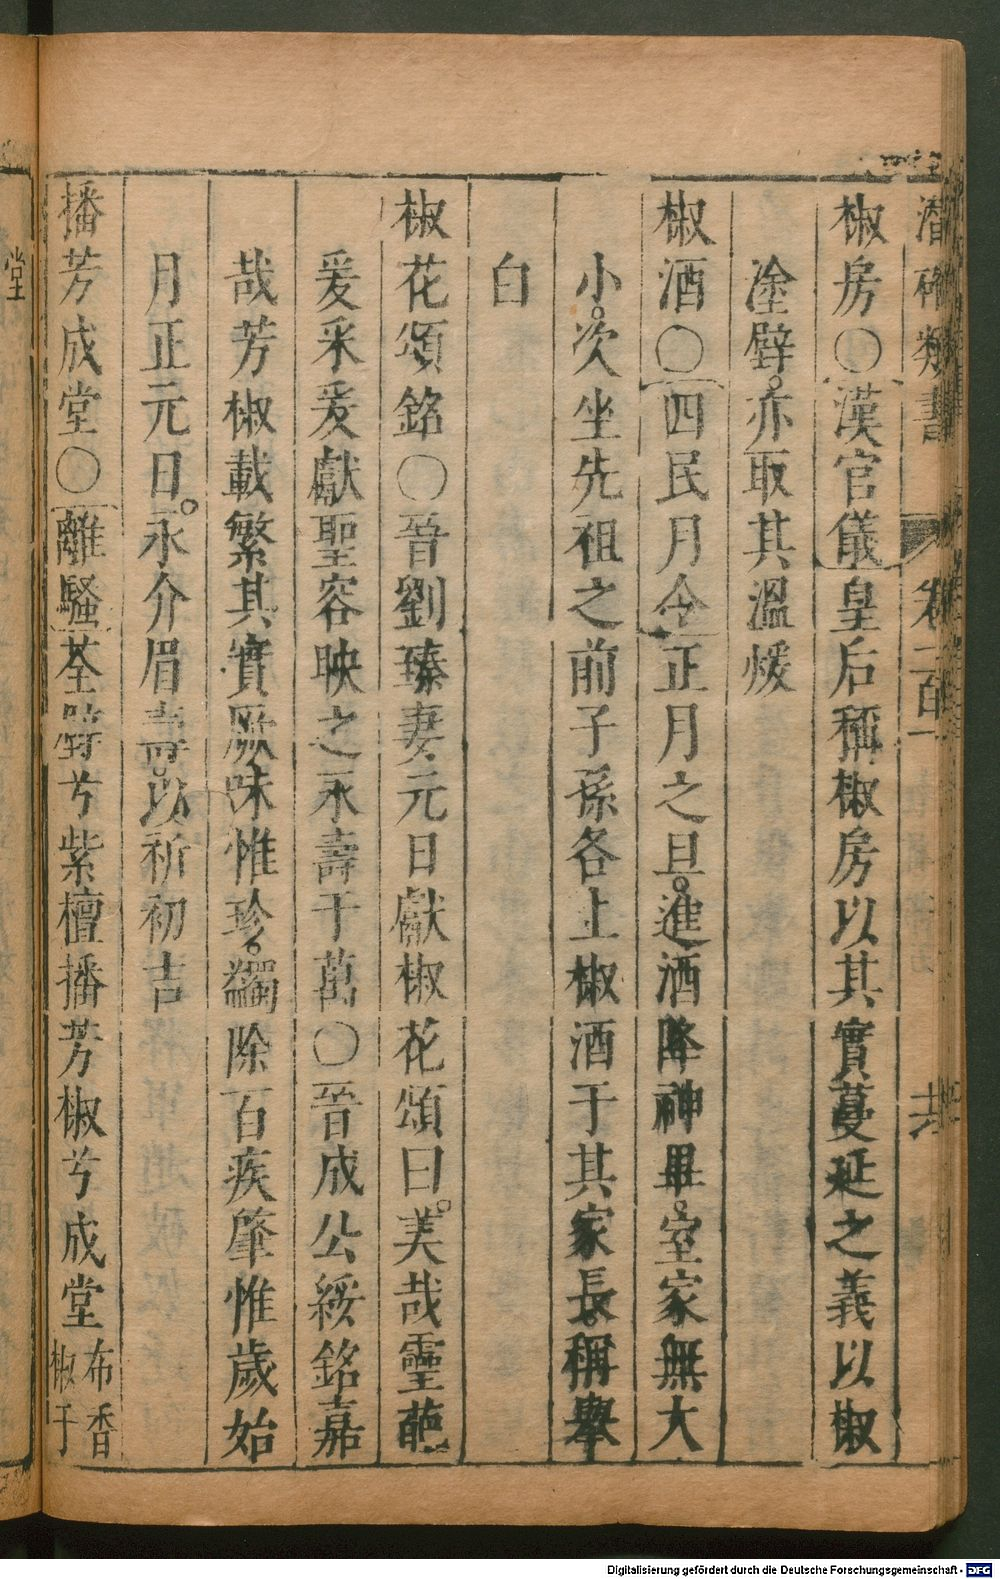 潛確類書 卷一百一
椒房〇漢官儀皇后稱椒房以其實蔓延之義以椒
塗壁亦取其溫煖
椒酒〇四民月令正月之旦進酒降神畢室家無大
小次坐先祖之前子孫各上椒酒于其家長稱舉
白
椒花頌銘〇晉劉臻妻元日獻椒花頌曰美哉靈葩
爰采爰獻聖容映之永壽于萬〇晉成公綏銘嘉
哉芳椒載繁其實厥味惟珍蠲除百疾肇惟歲始
月正元日永介眉壽以祈初吉
播芳成堂〇離騷荃兮紫檀播芳椒兮成堂布香椒于
堂
Digitalisierung gefördert durch die Deutsche Forschungsgemeinschaft - DFG